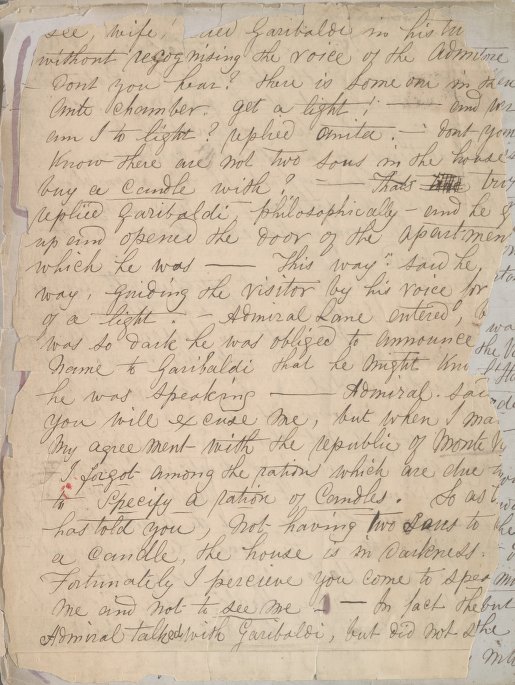 see, wife, Garibaldi in his
without recognising the voice of the Admiral
Dont you hear? there is some one in the
ante chamber. get a light! — and
am I to light? replied Anita. — dont you
know there are not two sous in the house
buy a candle with? — Thats
replied Garibaldi, philosophically — and he
up and opened the door of the apartmen
which he was — This way" said he,
way, guiding the visitor by his voice for
of a light. — Admiral Lane entered,
was so dark he was obliged to announce
name to Garibaldi that he might
he was speaking — Admiral. said
you will excuse me, but when I
my agreement with the republic of Monte
I forgot among the rations which are due
to specify a ration of Candles. So as
has told you, not having two sous to
a candle, the house is in darkness.
Fortunately I percieve you come to
me and not to see me — In fact the
Admiral talked with Garibaldi, but did not